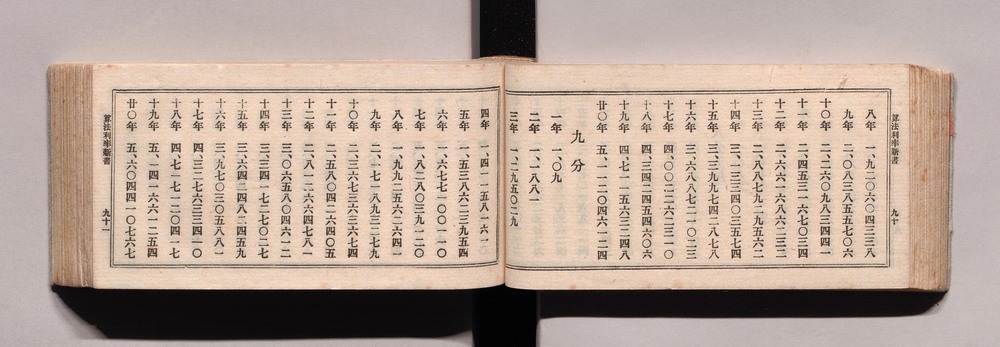 算法利率新書 九十
八年 一、九二〇六〇四三三八
九年 二、〇八三八五五七〇六
十〇年 二、二六〇九八三四四一
十一年 二、四五三一六七〇三四
十二年 二、六六一六八六二三二
十三年 二、八八七九二九五六二
十四年 三、一三三四〇三五七四
十五年 三、三九九七四二八七八
十六年 三、六八八七二一〇二三
十七年 四、〇〇二二六二三一〇
十八年 四、三四二四五四六〇六
十九年 四、七一一五六三二四八
廿〇年 五、一一二〇四六一二四
九分
一年 一、〇九
二年 一、一八八一
三年 一、二九五〇二九
四年 一、四一一五八一六一
五年 一、五三八六二三九五四
六年 一、六七七一〇〇一一〇
七年 一、八二八〇三九一二〇
八年 一、九九二五六二六四一
九年 二、一七一八九三二七九
十〇年 二、三六七三六三六七四
十一年 二、五八〇四二六四〇五
十二年 二、八一二六六四七八一
十三年 三、〇六五八〇四六一二
十四年 三、三四一七二七〇二七
十五年 三、六四二四八二四五九
十六年 三、九七〇三〇五八八一
十七年 四、三二七六三三四一〇
十八年 四、七一七一二〇四一七
十九年 五、一四一六六一二五四
廿〇年 五、六〇四四一〇七六七
算法利率新書 九十一